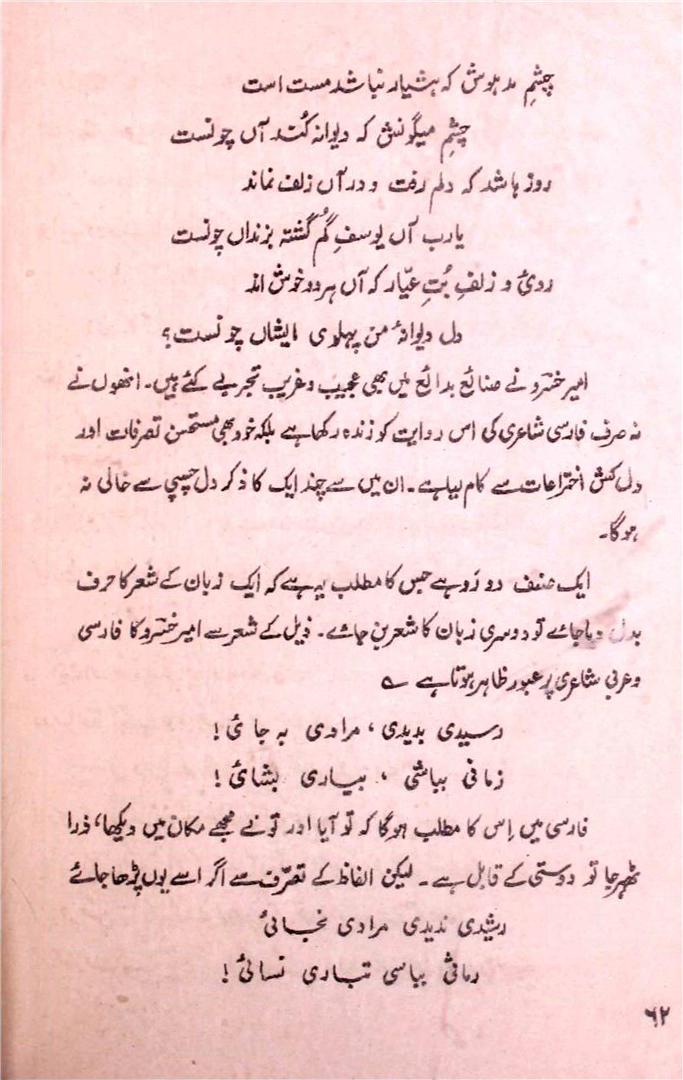 چشمِ مدہوش کہ ہشیار نباشد مست است
چشمِ میگونش کہ دیوانہ کُند آں چونست
روز ہا شد کہ دلم رفت و در آں زلف نماند
یارب آں یوسفِ گُم گشتہ بزنداں چونست
روئ و زلفِ بُتِ عیّار کہ آں ہر دو خوش اند
دل دیوانۂ من پہلوی ایشاں چونست؟
امیر خسرو نے صنائع بدائع میں بھی عجیب و غریب تجربے کئے ہیں۔ انھوں نے
نہ صرف فارسی شاعری کی اس روایت کو زندہ رکھا ہے بلکہ خود بھی مستحسن تصرفات اور
دل کش اختراعات سے کام لیا ہے۔ ان میں سے چند ایک کا ذکر دل چسپی سے خالی نہ
ہوگا۔
ایک صنف دو رُو ہے جس کا مطلب یہ ہے کہ ایک زبان کے شعر کا حرف
بدل دیا جائے تو دوسری زبان کا شعر بن جائے۔ ذیل کے شعر سے امیر خسرو کا فارسی
و عربی شاعری پر عبور ظاہر ہوتا ہے ؎
رسیدی بدیدی، مرادی بہ جائ!
زمانی بباشی، بیاری بشائ!
فارسی میں اِس کا مطلب ہوگا کہ تو آیا اور تو نے مجھے مکان میں دیکھا، ذرا
ٹھہر جا تو دوستی کے قابل ہے۔ لیکن الفاظ کے تصرّف سے اگر اسے یوں پڑھا جائے
رشیدی ندیدی مرادی نجائیُ
رمانیُ بیاسی تباری نسائیُ!
۶۲